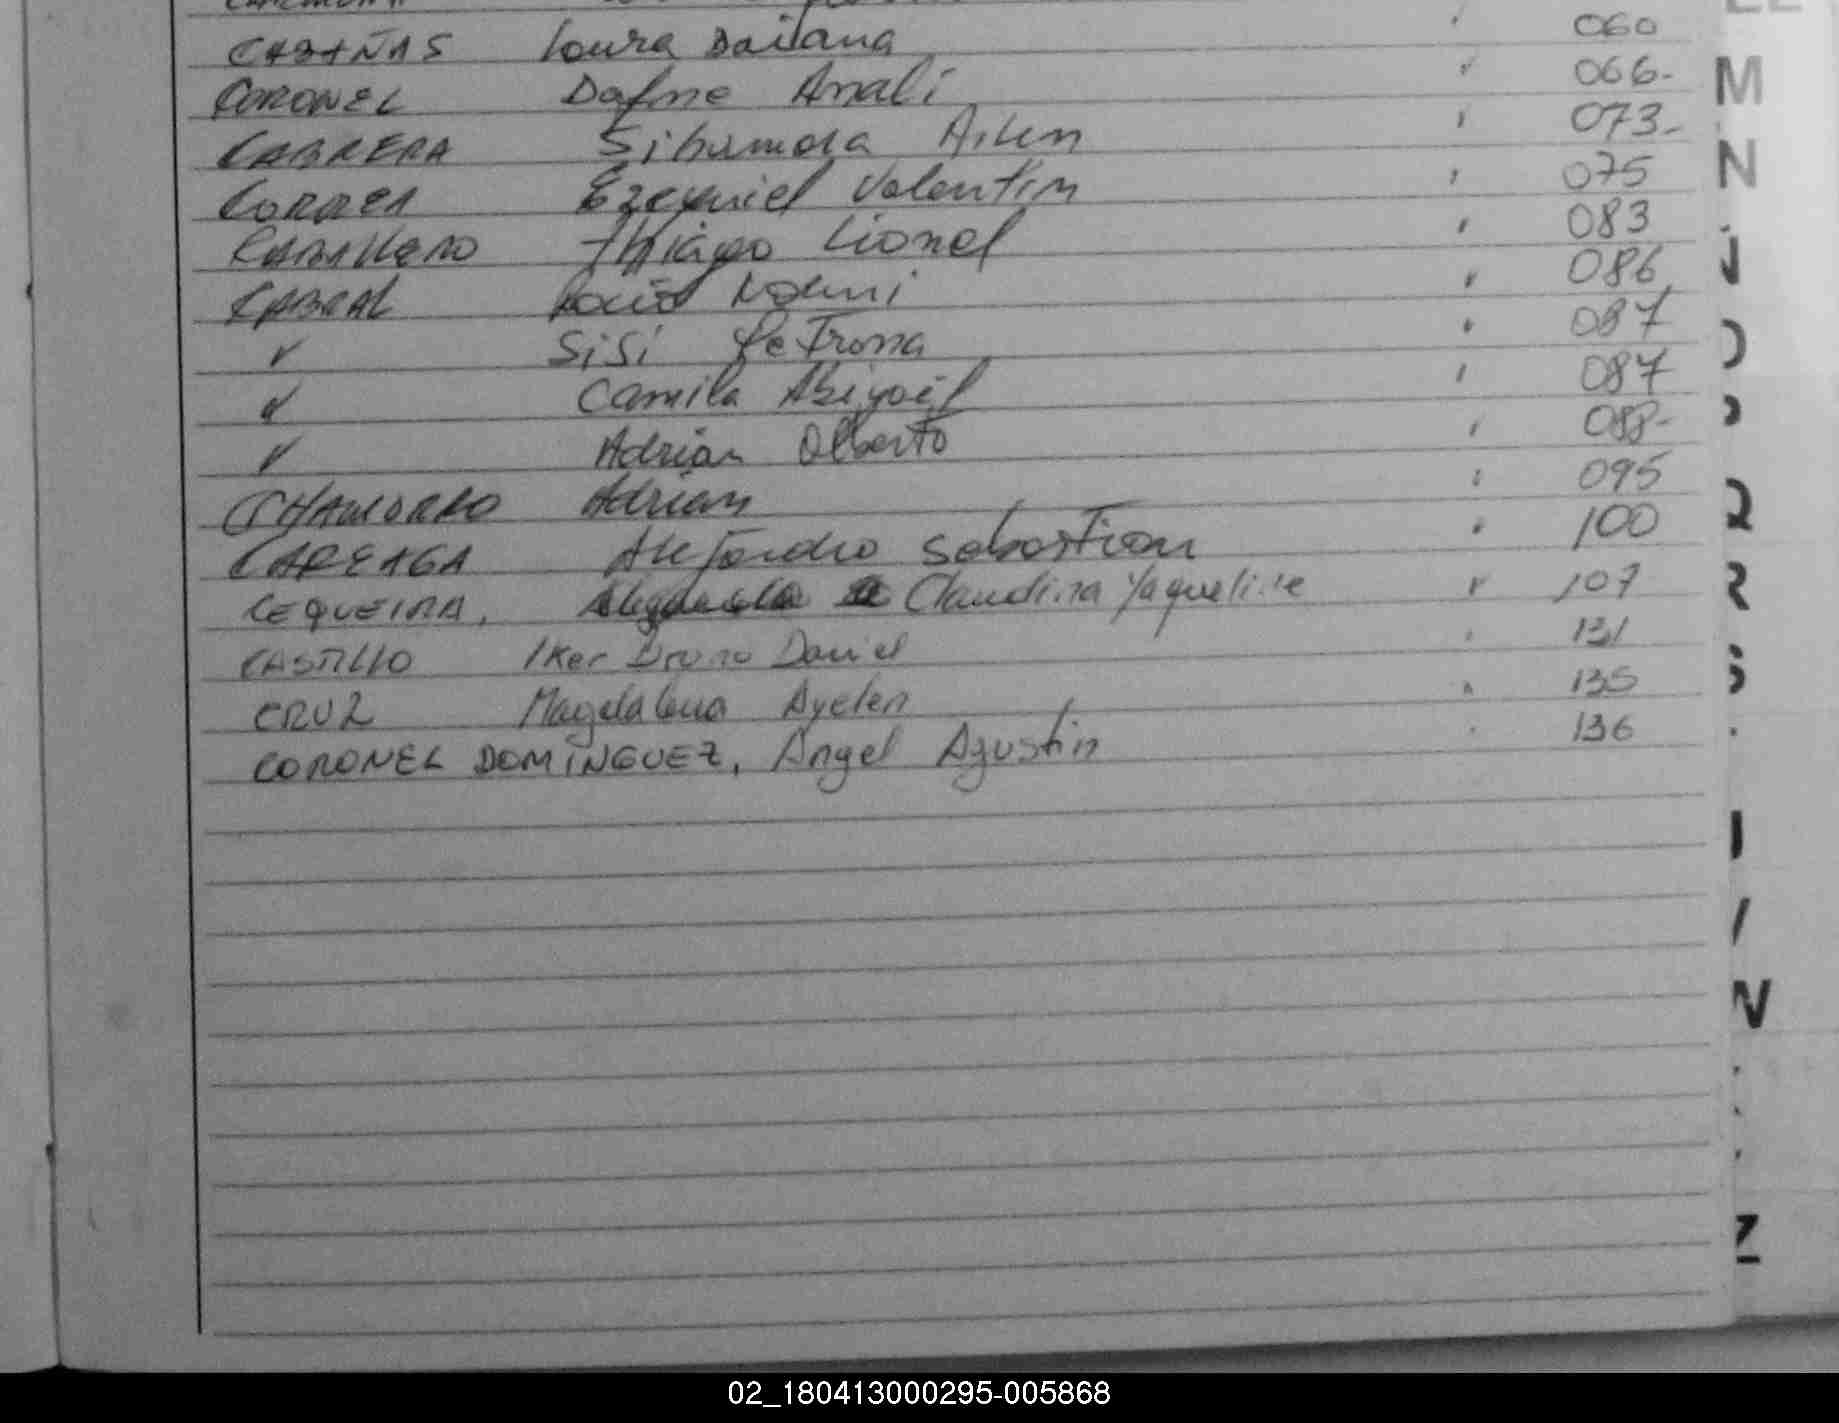 CABAÑAS Laura Daiana ' 060
CORONEL Dafne Anali " 066-
CABRERA Ailen ' 073-
CORREA Ezequiel Valentin ' 075
CABALLERO Thiago Lionel ' 083
CABRAL Rocío Noemi " 086
" Sisi Petrona " 087
" Camila Abigail ' 087
" Adrian Alberto ' 088-
CHAMORRO Adrian ' 095
CAREAGA Alejandro Sebastian " 100
CEQUEIRA, Claudina Yaqueline " 107
CASTILLO Iker Bruno Daniel ' 131
CRUZ Magdalena Ayelen " 135
CORONEL DOMÍNGUEZ, Angel Agustín ' 136
M
N
O
P
Q
R
S
W
Z
02_180413000295-005868